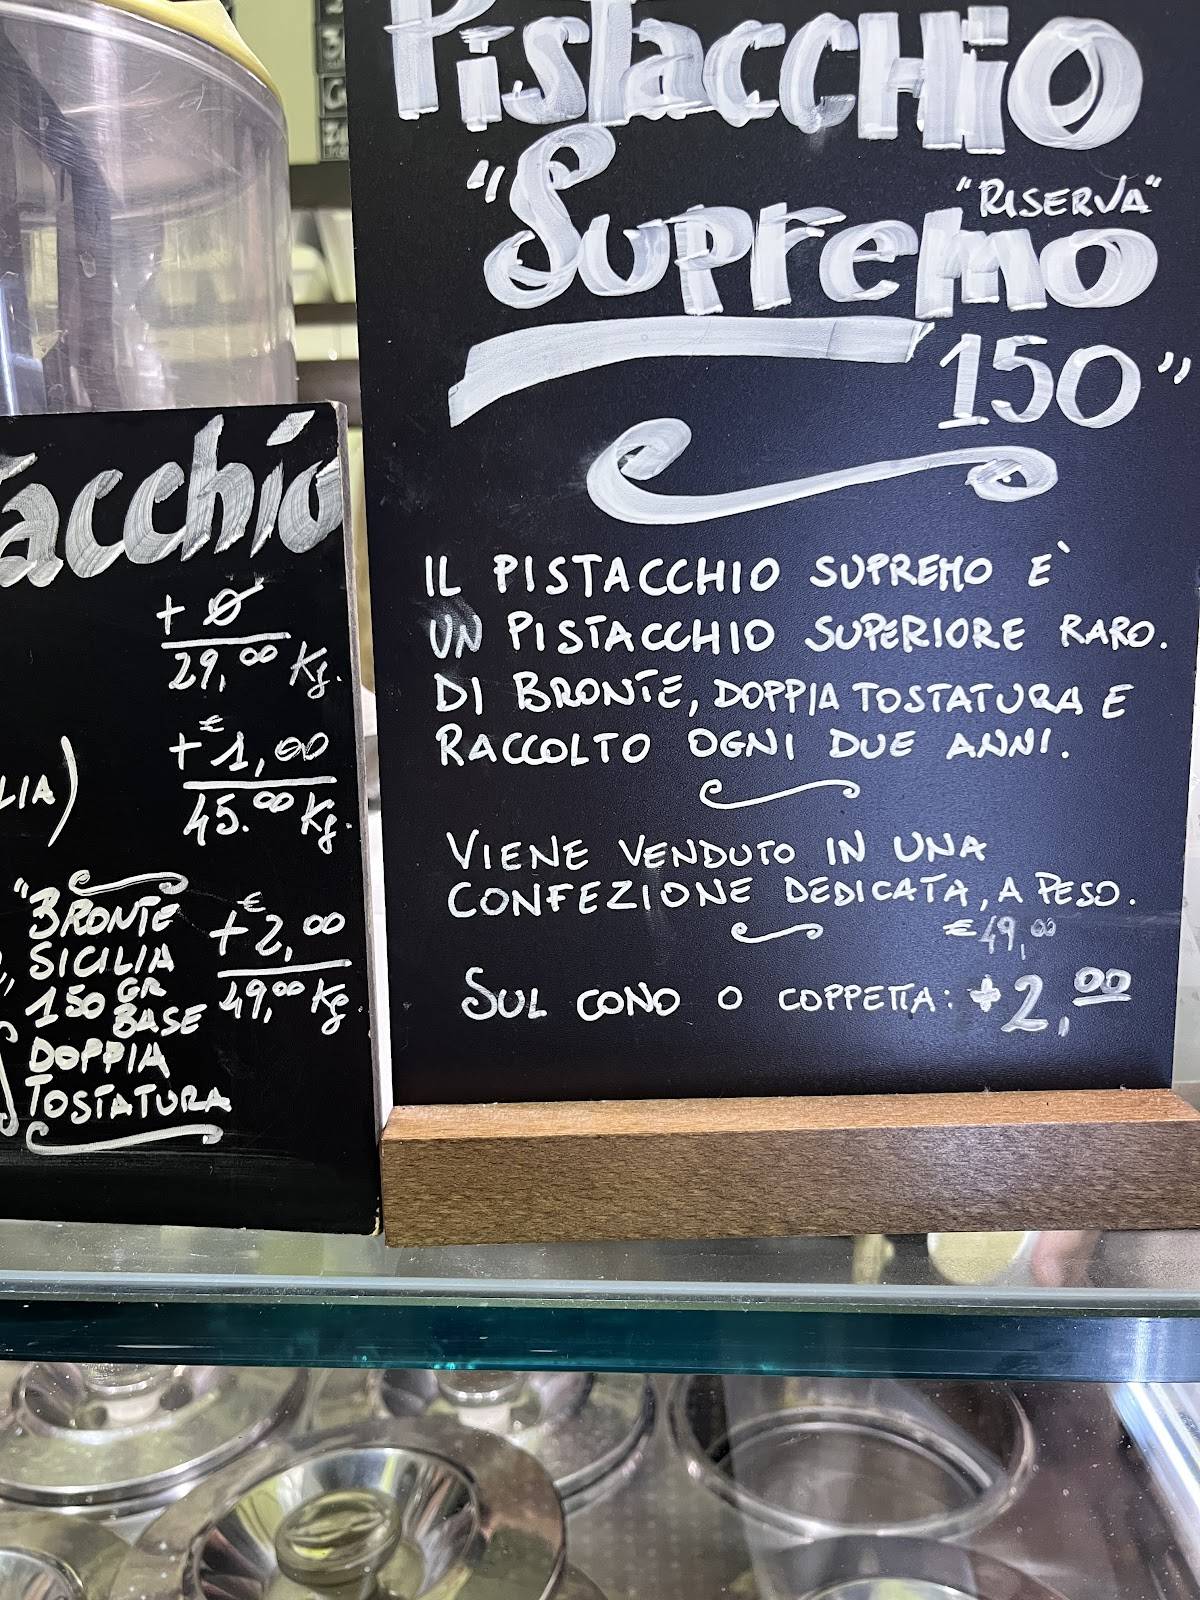 Pistacchio
"RISERVA"
"Supremo
150"
IL PISTACCHIO SUPREMO E`
UN PISTACCHIO SUPERIORE RARO.
DI BRONTE, DOPPIA TOSTATURA E
RACCOLTO OGNI DUE ANNI.
VIENE VENDUTO IN UNA
CONFEZIONE DEDICATA, A PESO.
€49,00
SUL CONO O COPPETTA: +2,00
tacchio
+ 0
29,00 Kg.
+ €1,00
LIA)
45.00 Kg.
"BRONTE
SICILIA
150 GR
BASE
DOPPIA
TOSTATURA
+ €2,00
49,00 Kg